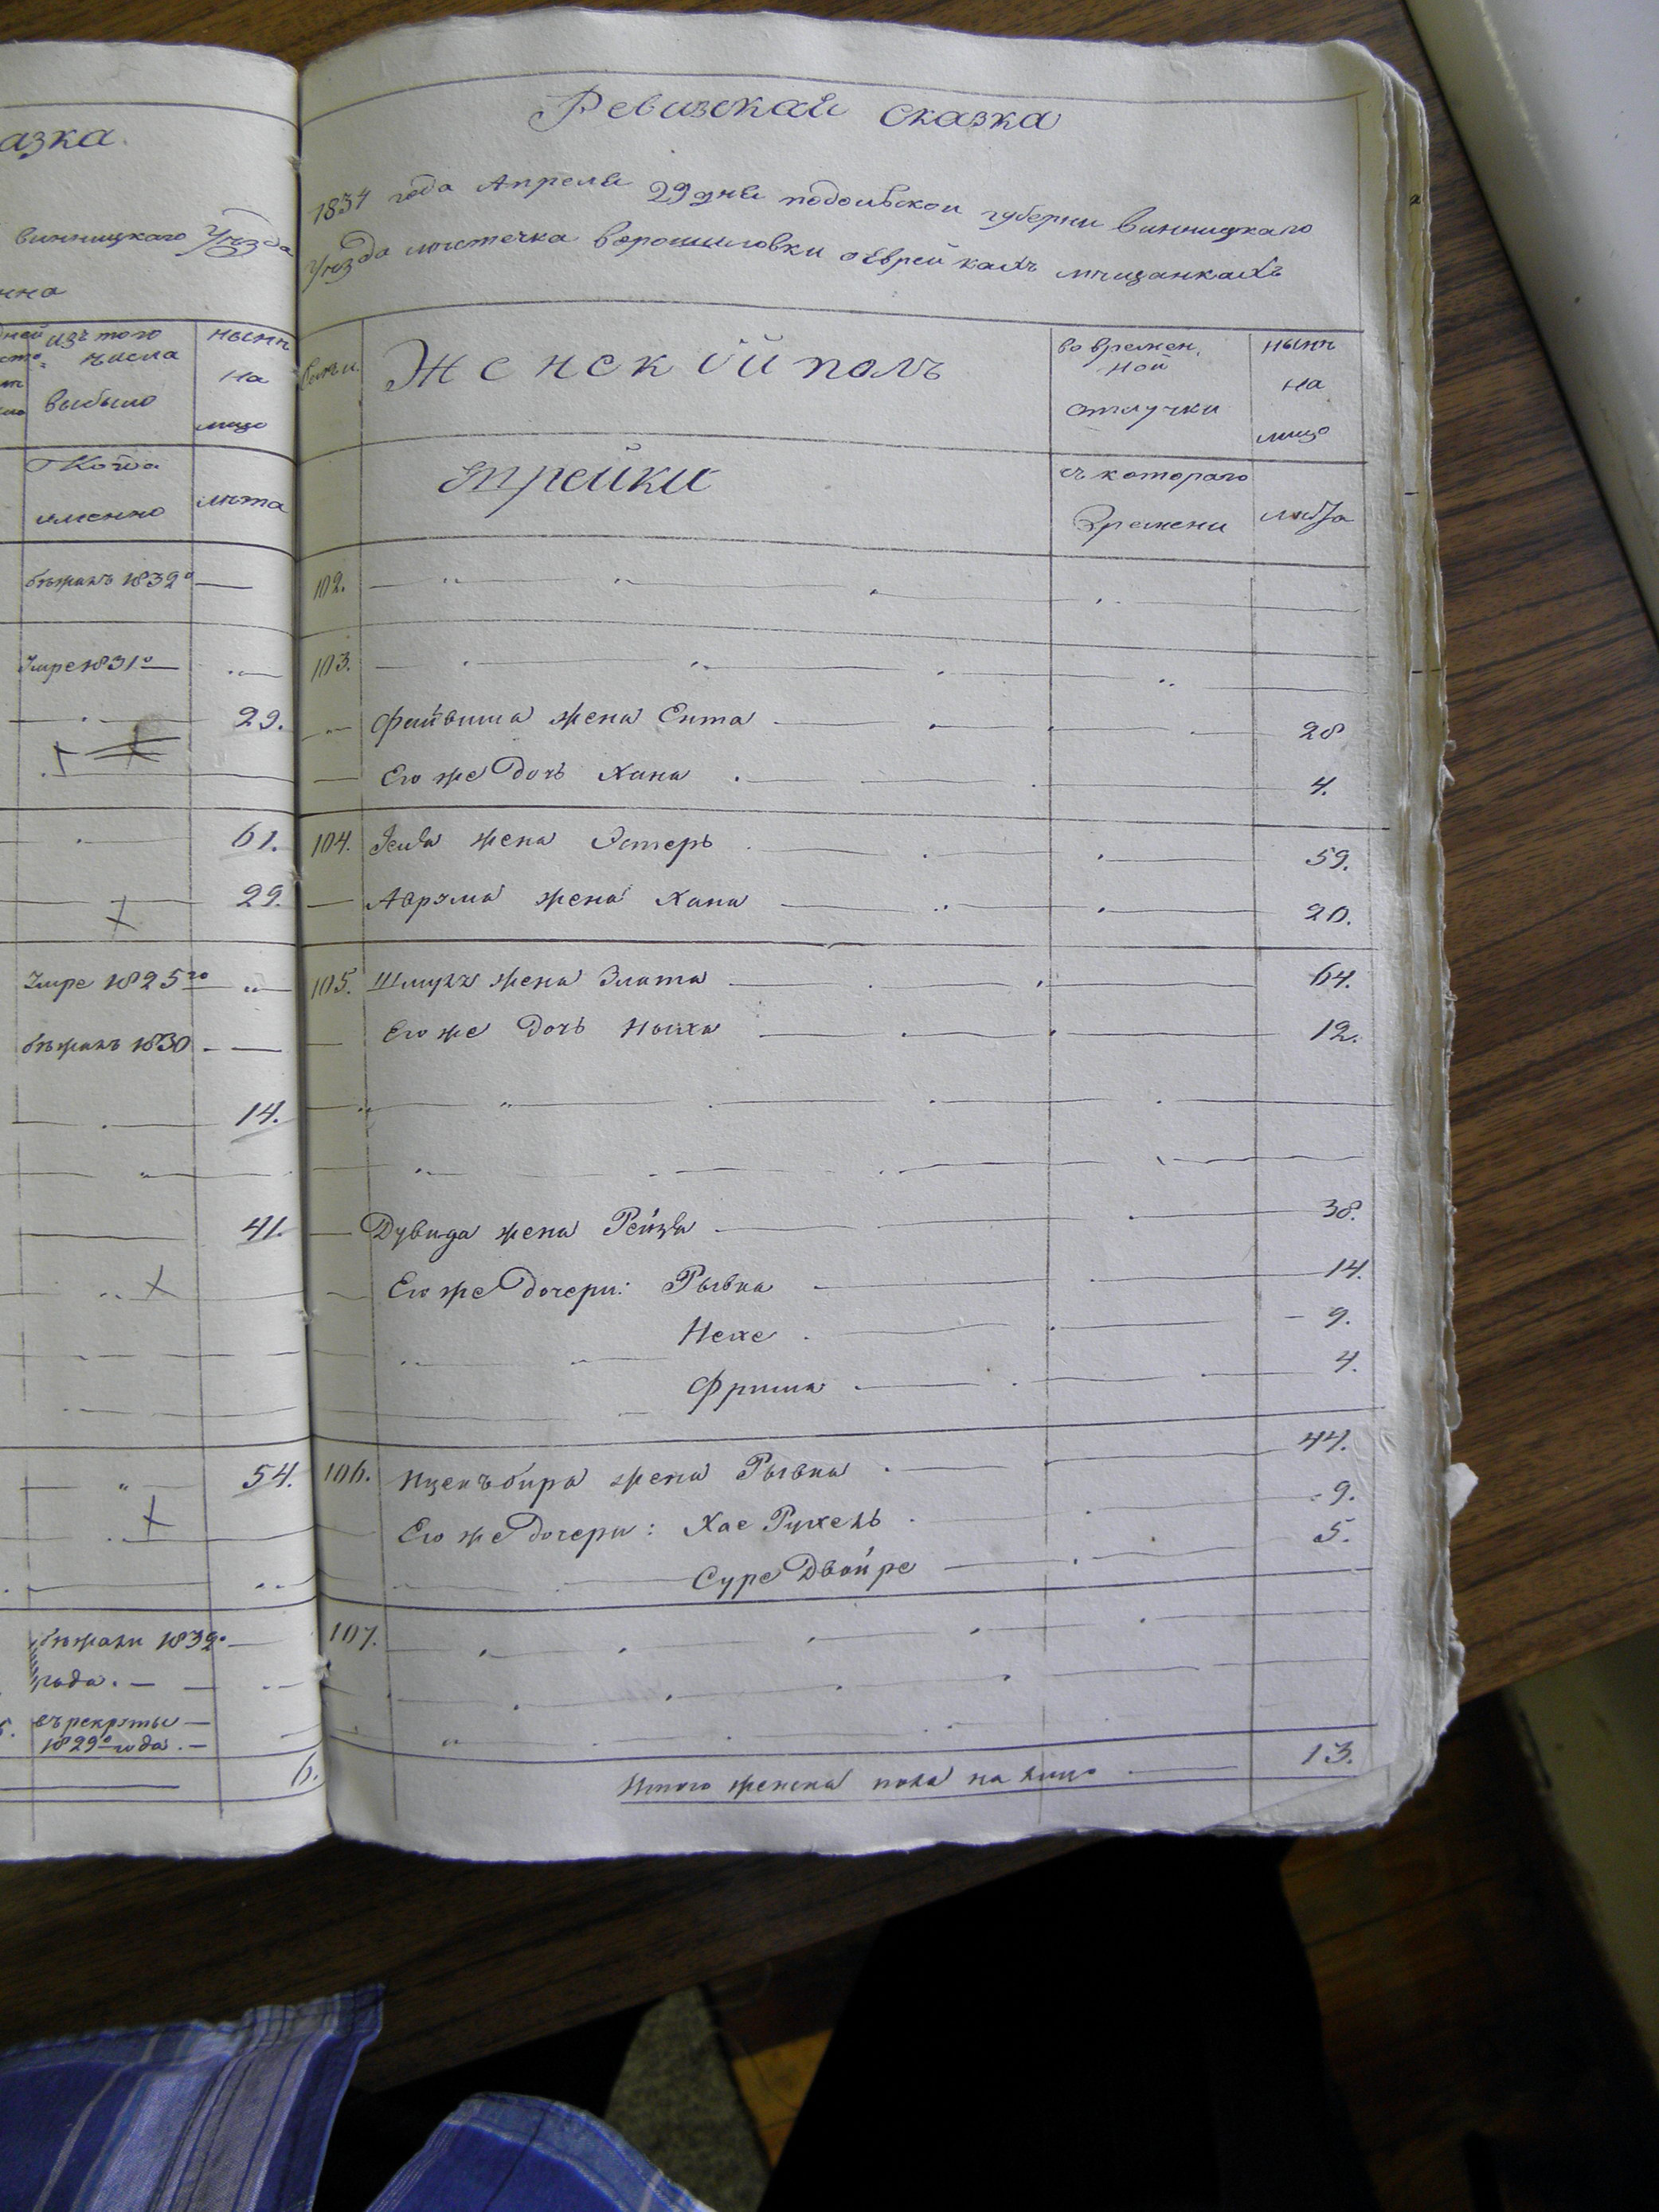 азка.
винницкаго Уѣзда
нна
изъ того
числа
выбыло
нынѣ
на
лицо
Когда
именно
лѣта
бѣжалъ 1832º —
Умре 1831º —
29.
61.
29.
Умре 1825го
бѣжалъ 1830 —
14.
41.
54.
бѣжали 1832º —
года. —
въ рекруты —
1829º года. —
6.
Ревизская сказка
1834 года Апреля 29 дня подольской губерни Винницкаго
Уѣзда мѣстечка Ворошиловки о Еврейкахъ мѣщанкахъ
Женскій полъ
во времен,
ной
отлучки
нынѣ
на
лицо
съ котораго
Времени
лѣта
102.
103.
Файвиша жена Ента 28
Его же дочь Хана 4.
104. жена Эстеръ 59.
Аврума жена Хана 20.
105. Шмуля жена Злата 64.
Его же дочь 12.
Дувида жена Рейзя 38.
Его же дочери: Рывка 14.
Нехе 9.
4.
106. жена Рывка 44.
Его же дочери: Хае Рухель 9.
Суре Двойре 5.
107.
Итого женска пола на лицо 13.